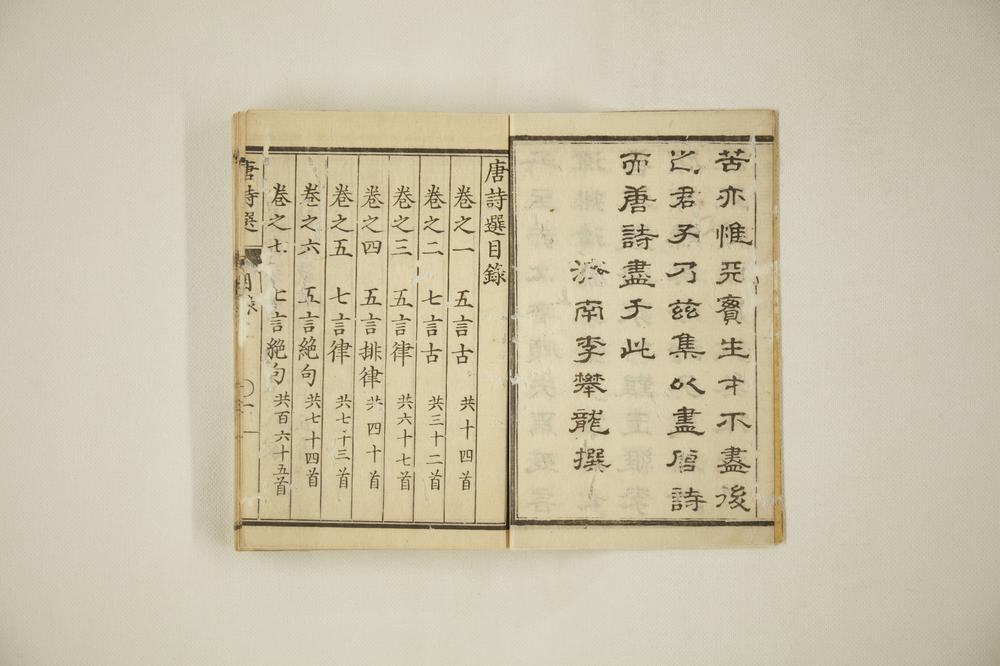 苦亦惟天實生才不盡後
之君子乃茲集以盡唐詩
而唐詩盡于此
濟南李攀龍撰
唐詩選目錄
卷之一 五言古 共十四首
卷之二 七言古 共三十二首
卷之三 五言律 共六十七首
卷之四 五言排律 共四十首
卷之五 七言律 共七十三首
卷之六 五言絕句 共七十四首
卷之七 七言絕句 共百六十五首
唐詩選 目錄 〇一